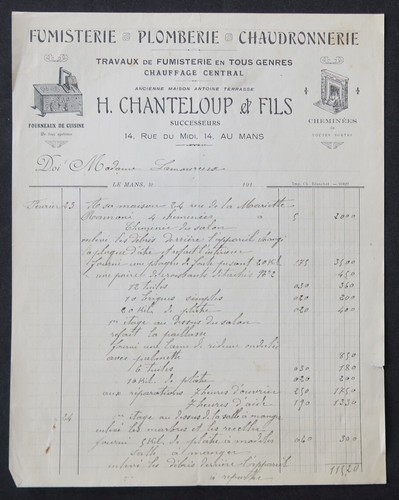 FUMISTERIE PLOMBERIE CHAUDRONNERIE
TRAVAUX DE FUMISTERIE EN TOUS GENRES
CHAUFFAGE CENTRAL
ANCIENNE MAISON ANTOINE TERRASSE
H. CHANTELOUP & FILS
SUCCESSEURS
14, RUE DU MIDI, 14, AU MANS
FOURNEAUX DE CUISINE
CHEMINÉES
DE TOUTES SORTES
Doi Madame Lamoureux
LE MANS, le 191
Février 23 sa maison 24 rue de la Mariette
Ramoné 4 cheminées à 5 2000
Cheminée du salon
enlevé les débris derrière l'appareil changé
fourni une plaque de fonte pesant 20 K. 175 3500
une paire de croissants N° 2 450
12 tuiles 030 360
10 briques simples 020 200
20 Kil. de plâtre 020 400
1er étage au Dessus du salon
refait la paillasse
fourni une lame de rideau ondulée
avec palmette 850
6 tuiles 030 180
10 Kil. de plâtre 020 200
aux réparations 7 heures d'ouvrier 250 1750
7 heures d'aide 190 1330
24 1er étage au dessus de la salle à manger
enlevé les marbres et les
fourni 5 Kil. de plâtre à modeler 060 300
Salle à manger
enlevé les débris derrière l'appareil